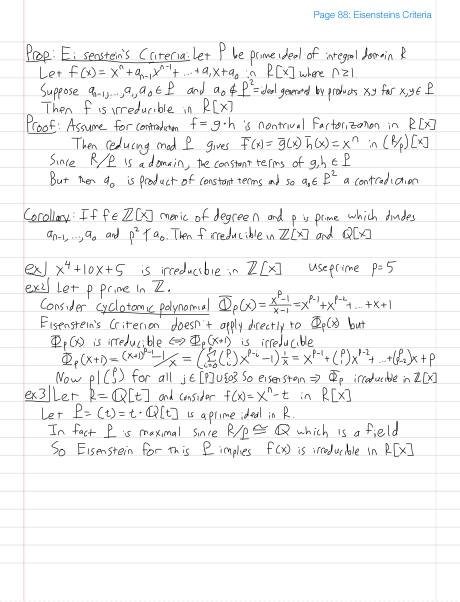 Page 88: Eisensteins Criteria
Prop: Eisenstein's Criteria: Let P be prime ideal of integral domain R
Let f(x) = x^n + a_{n-1}x^{n-1} + ... + a_1x + a_0 in R[x] where n≥1
Suppose a_{n-1}, ..., a_1, a_0 ∈ P and a_0 ∉ P^2 = ideal generated by products xy for x,y ∈ P
Then f is irreducible in R[x]
Proof: Assume for contradiction f = g·h is nontrivial factorization in R[x]
Then reducing mod P gives f̄(x) = ḡ(x) h̄(x) = x^n in (R/P)[x]
Since R/P is a domain, the constant terms of g,h ∈ P
But then a_0 is product of constant terms and so a_0 ∈ P^2 a contradiction
Corollary: If f ∈ Z[x] monic of degree n and p is prime which divides
a_{n-1}, ..., a_0 and p^2 ∤ a_0. Then f irreducible in Z[x] and Q[x]
ex] x^4 + 10x + 5 is irreducible in Z[x] Use prime p=5
ex2] Let p prime in Z.
Consider cyclotomic polynomial Φ_p(x) = (x^p-1)/(x-1) = x^{p-1} + x^{p-2} + ... + x + 1
Eisenstein's Criterion doesn't apply directly to Φ_p(x) but
Φ_p(x) is irreducible ⟺ Φ_p(x+1) is irreducible
Φ_p(x+1) = ((x+1)^p - 1)/x = (Σ_{i=0}^{p} (p i) x^{p-i} - 1) 1/x = x^{p-1} + (p 1)x^{p-2} + ... + (p p-2)x + p
Now p | (p j) for all j ∈ [p]∪{0} So eisenstein ⇒ Φ_p irreducible in Z[x]
ex3] Let R = Q[t] and consider f(x) = x^n - t in R[x]
Let P = (t) = t·Q[t] is a prime ideal in R.
In fact P is maximal since R/P ≅ Q which is a field
So Eisenstein for this P implies f(x) is irreducible in R[x]